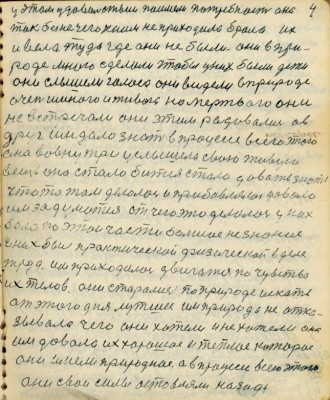 у этом удовольствии пошли потребность она 4
так без него ихним не приходило брала их
и вела туда где они не были. они в при-
роде много сделали чтобы у них были дети
они слышели голоса они видели в природе
очен много и живого но мертвого они
не встречали они этим радовались а в
друг им дало знать в процесе всего этого
она вовнутри услышела свою живую
вещь она стала битися стала давать знать
что то там делалось и прибавлялось давало
им задуматся от чего это делалось у них
было по этой части большое незнание
у них был практический физический в деле
труд. им приходилось двигатся по чувству
их телов, они старались по природе искать
от этого дня лутшее им природа не отка-
зывала чего они хотели и не хотели она
им давала их хорошее и теплое которое
они имели природное. а в процесе всего этого
они свои силы оставляли назади